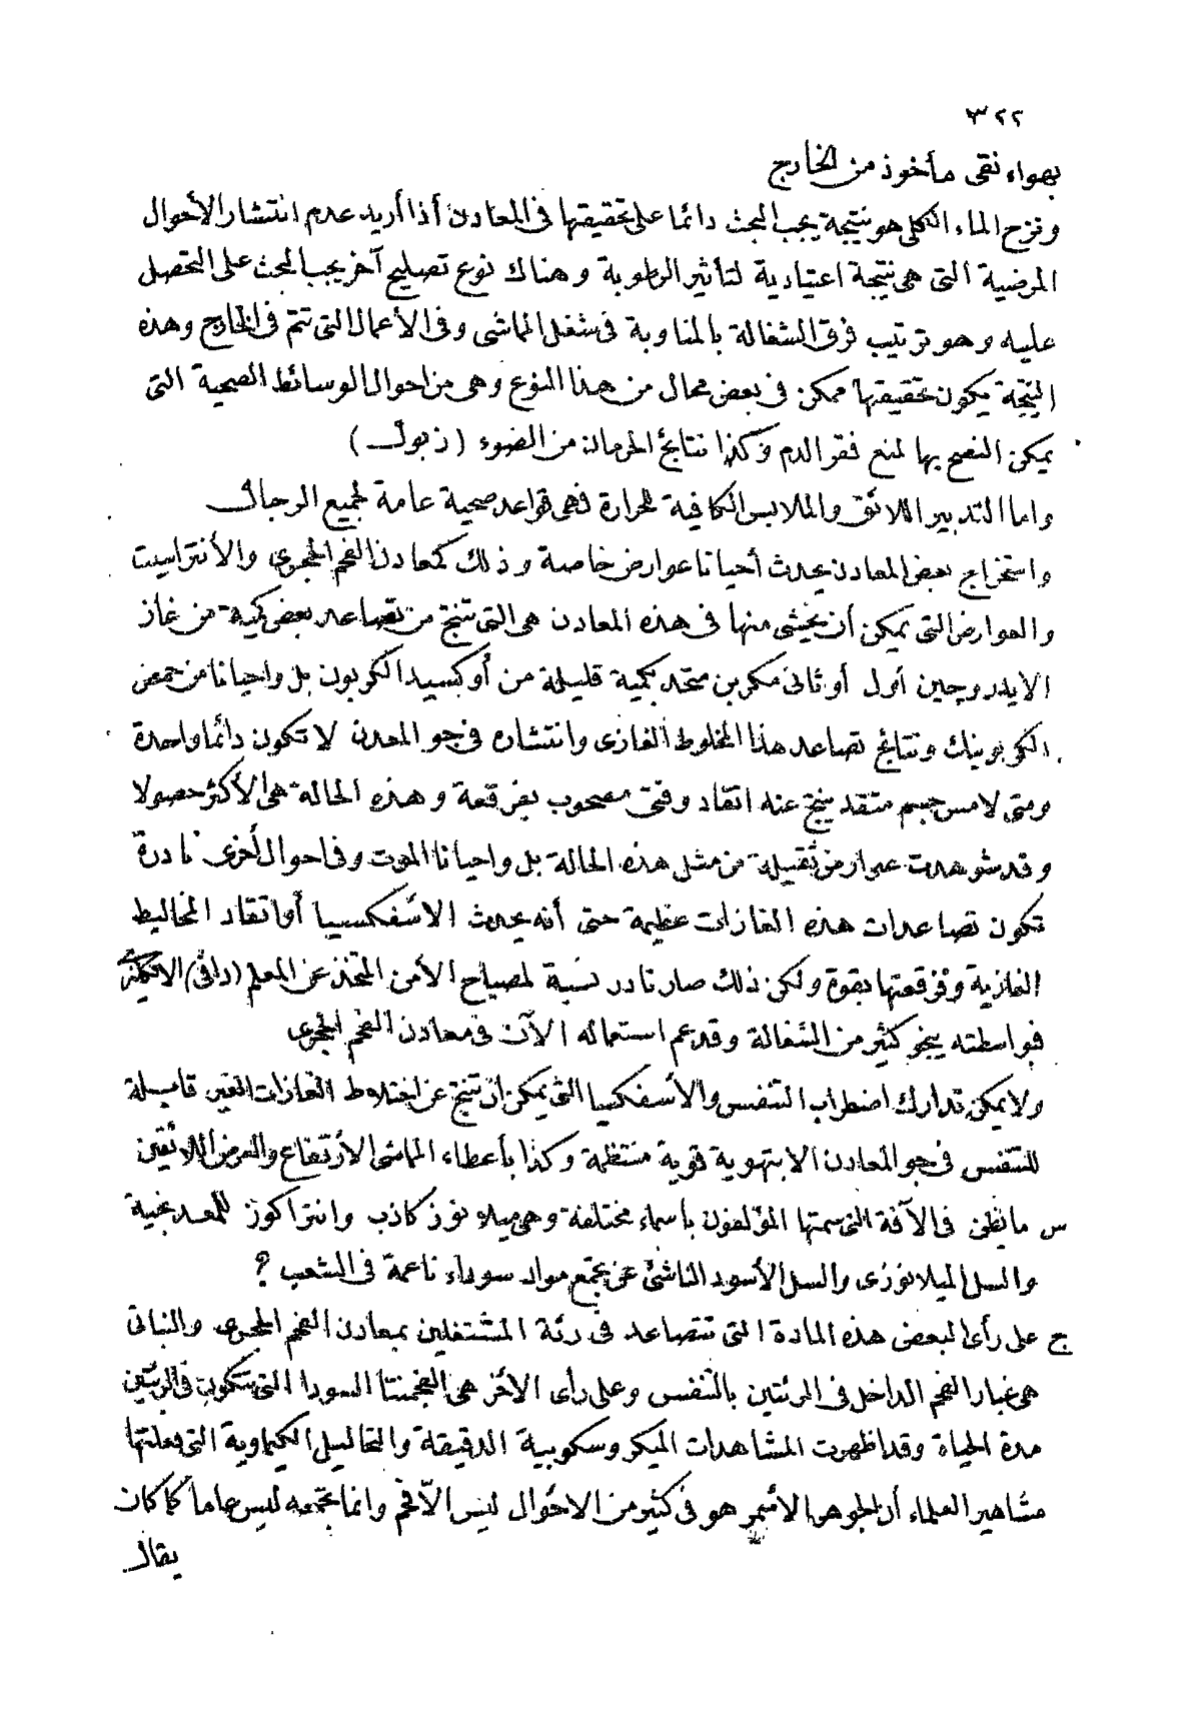 ٣٢٢
بهواء نقى مأخوذ من الخارج
ونزح الماء الكلى هو نتيجة يجب البحث دائما على تحقيقها فى المعادن أذا أريد عدم انتشار الأحوال
المرضية التى هى نتيجة اعتيادية لتأثير الرطوبة وهناك نوع تصليح آخر يجب البحث على التحصل
عليه وهو ترتيب فرق الشغالة بالمناوبة فى شغل الماشى وفى الأعمال التى تتم فى الخارج وهذه
النتيجة يكون تحقيقها ممكن فى بعض محال من هذا النوع وهى من احوال الوسائط الصحية التى
يمكن النصح بها لمنع فقر الدم وكذا نتائج الحرمان من الضوء (زبول)
واما التدبير اللائق والملابس الكافية للحرارة فهى قواعد صحية عامة لجميع الرجال
واستخراج بعض المعادن يحدث أحيانا عوارض خاصة وذلك كمعادن الفحم الحجرى والأنتراسيت
والعوارض التى يمكن أن يخشى منها فى هذه المعادن هى التى تنتج من تصاعد بعض كمية من غاز
الايدروجين أول أو ثانى مكربن متحد بكمية قليلة من أوكسيد الكربون بل واحيانا من حمض
الكربونيك ونتائج تصاعد هذا المخلوط الغازى وانتشاره فى جو المعدن لا تكون دائما واحدة
ومتى لامس جسم متقد ينتج عنه اتقاد وقتى مصحوب بفرقعة وهذه الحالة هى الأكثر حصولا
وقد شوهدت عوارض ثقيلة من مثل هذه الحالة بل واحيانا الموت وفى احوال أخرى نادرة
تكون تصاعدات هذه الغازات عظيمة حتى أنه يحدث الاسفكسيا أو اتقاد المخاليط
الغازية وفرقعتها بقوة ولكن ذلك صار نادر نسبة لمصباح الأمن المتخذ عن المعلم (دافى) الانكليزى
فبواسطته ينجو كثير من الشغالة وقد عم استعماله الآن فى معادن الفحم الحجرى
ولا يمكن تدارك اضطراب التنفس والأسفكسيا التى يمكن ان تنتج عن اختلاط الغازات الغير قابلة
للتنفس فى جو المعادن الا بتهوية قوية منتظمة وكذا بأعطاء الماشى الأرتفاع والعرض اللائقين
س ما يظن فى الآفة التى سمتها المؤلفون باسماء مختلفة وهى ميلانوز كاذب وانتراكوز للمعدنجية
والسل الميلانوزى والسل الأسود الناشئ عن تجمع مواد سوداء ناعمة فى الشعب ؟
ج على رأى البعض هذه المادة التى تتصاعد فى رئة المشتغلين بمعادن الفحم الحجرى والنباتى
هى غبار الفحم الداخل فى الرئتين بالتنفس وعلى رأى الأخر هى البجمنتا السودا التى تتكون فى الرئتين
مدة الحياة وقد اظهرت المشاهدات الميكروسكوبية الدقيقة والتحاليل الكيماوية التى فعلتها
مشاهير العلماء أن الجوهر الأسمر هو فى كثير من الاحوال ليس الاّ فحم وانما تجمعه ليس عاما كما كان
يقال